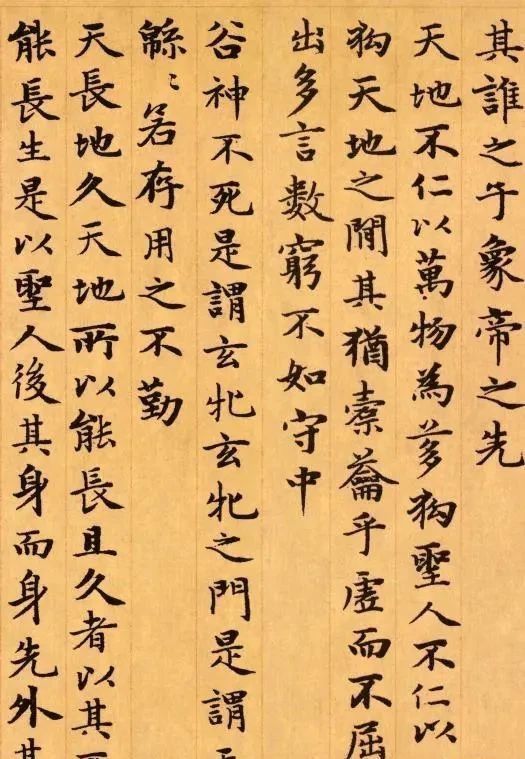 其誰之子象帝之先
天地不仁以萬物為芻狗聖人不仁以
狗天地之間其猶橐籥乎虛而不屈
出多言數窮不如守中
谷神不死是謂玄牝玄牝之門是謂
緜〻若存用之不勤
天長地久天地所以能長且久者以其
能長生是以聖人後其身而身先外其